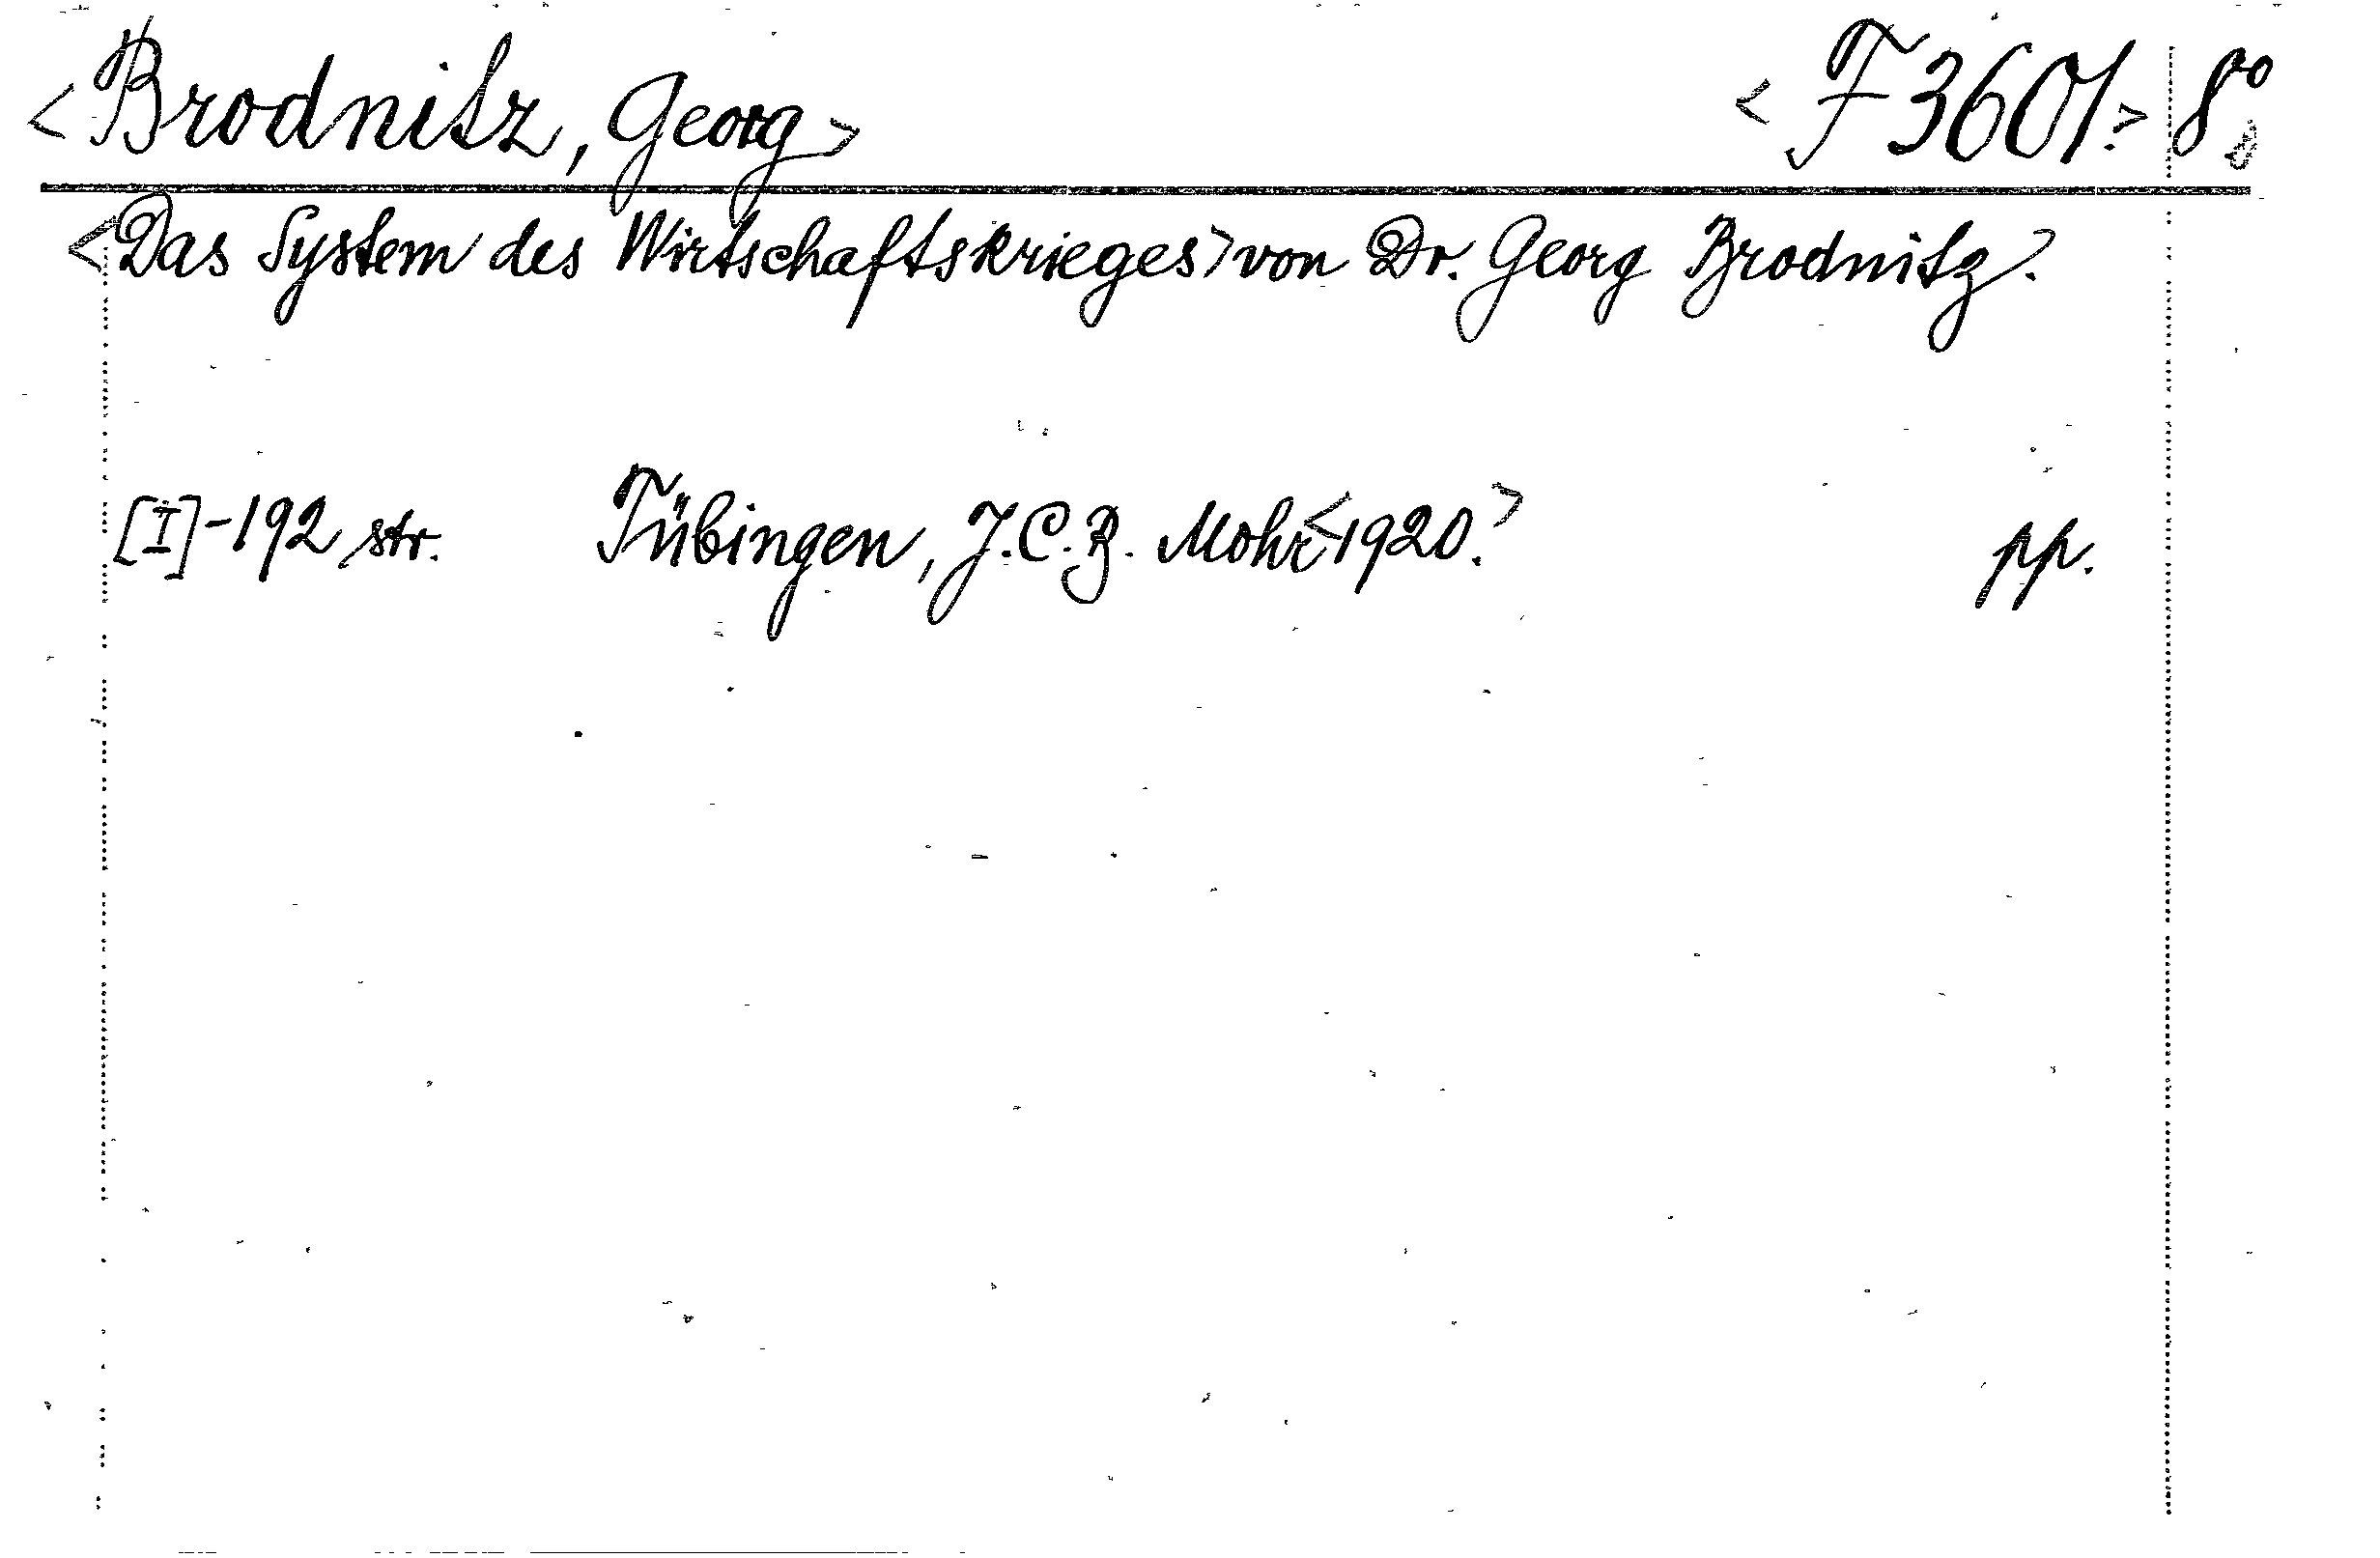 <Brodnitz, Georg> <F 3601.> 8°
<Das System des Wirtschaftskrieges> von Dr. Georg Brodnitz.
[I]-192 str. Tübingen, J.C.B. Mohr <1920.> pp.